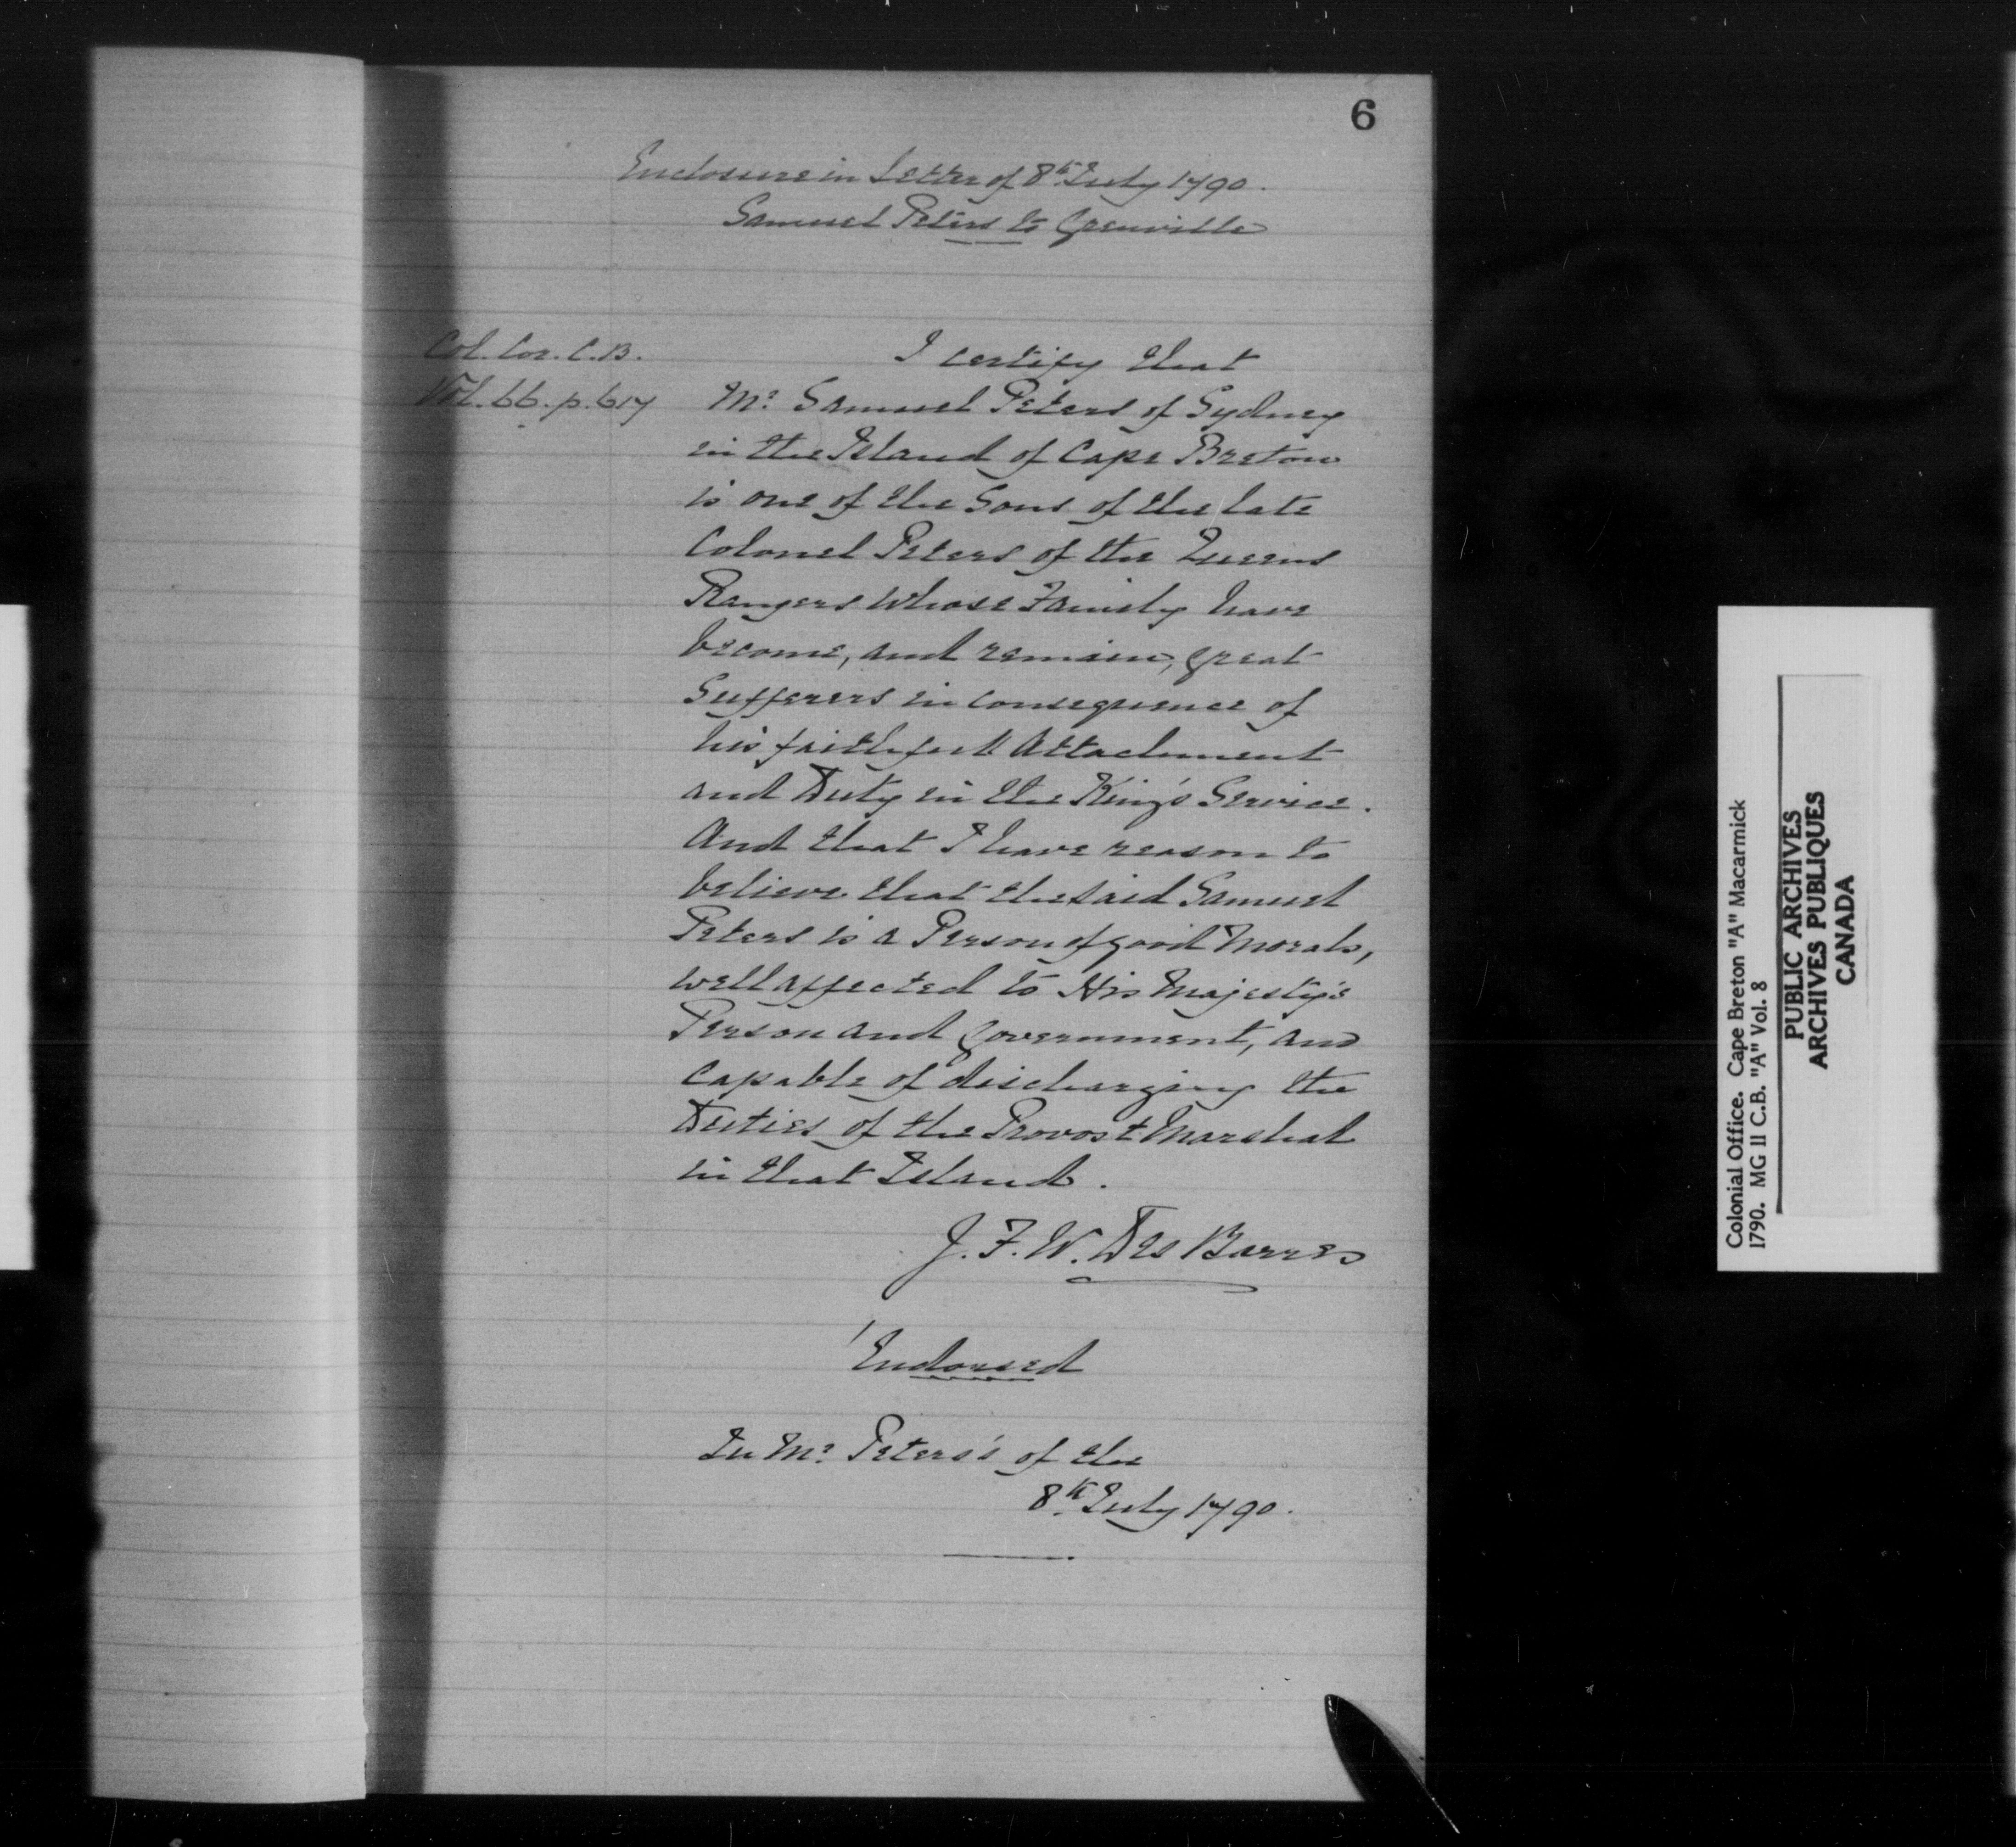 6
Enclosure in Letter of 8th July 1790.
Samuel Peters to Grenville
Col. Cor. C.B.
Vol. 66. p. 617
I certify that
Mr. Samuel Peters of Sydney
in the Island of Cape Breton
is one of the Sons of the late
Colonel Peters of the Queens
Rangers whose Family have
become, and remain, great
Sufferers in consequence of
his faithfull Attachment
and Duty in the King's Service.
And that I have reason to
believe that the said Samuel
Peters is a Person of good Morals,
well affected to His Majesty's
Person and Government, and
capable of discharging the
Duties of the Provost Marshal
in that Island.
J. F. W. Des Barres
Endorsed
In Mr. Peters's of the
8th July 1790.
Colonial Office. Cape Breton "A" Macarmick
1790. MG 11 C.B. "A" Vol. 8
PUBLIC ARCHIVES
ARCHIVES PUBLIQUES
CANADA